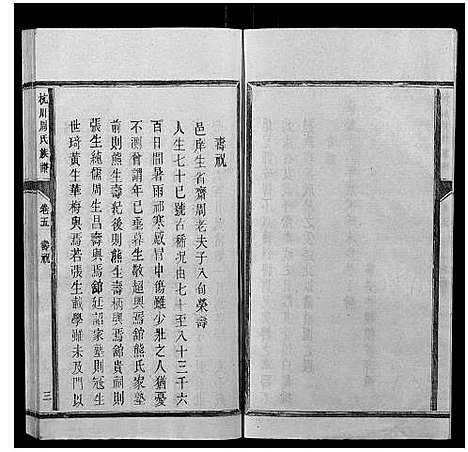 壽祝
邑庠生省齋周老夫子八旬榮壽
人生七十已號古稀況由七十至八十三千六
百日間暑雨祁寒感冒中傷雖少壯之人猶憂
不測曾謂年已垂暮生敬超與焉舘熊氏家塾
前則熊生壽紀後則熊生壽柄與焉舘貴祠則
張生純儒周生昌壽與焉舘廷詔家塾則冠生
世琦黃生華梅與焉若張生載學雖未及門以
杭川周氏族譜
卷五 壽祝
三